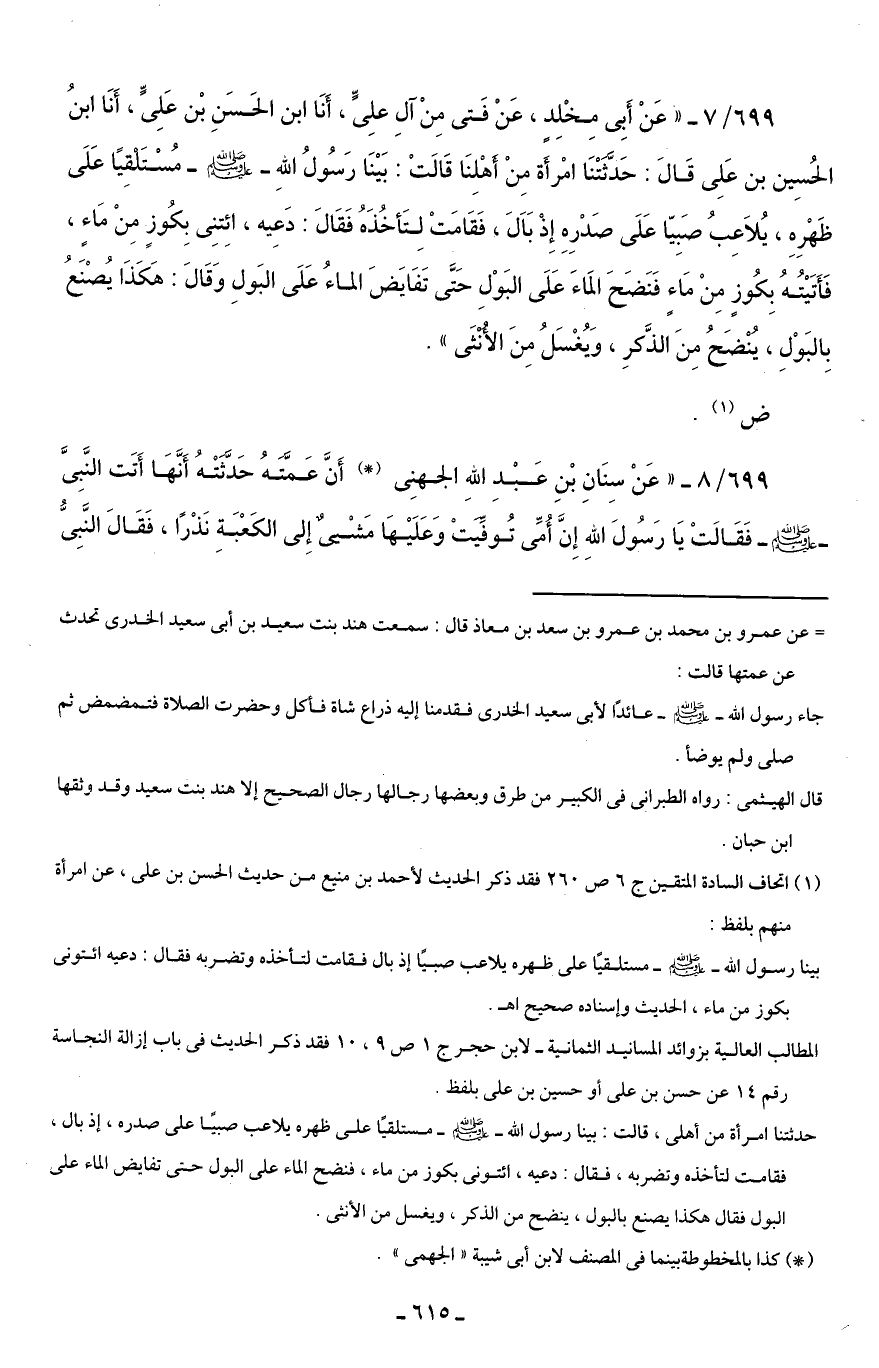 ٧/٦٩٩ ـ « عَنْ أَبِى مـخْلدٍ ، عَنْ فَـتى مِنْ آلِ علىٍّ ، أَنَا ابن الحَسَنِ بْن عَلِىٍّ ، أَنَا ابنُ
الحُسين بن عَلِى قَـالَ : حَدَّثَتْنَا امْرأَة مِنْ أَهْلنَا قَالَتْ : بَيْنَا رَسُولُ الله ـ ﷺ ـ مُسْتَلْقيًا عَلَى
ظَهْرِهِ ، يُلاَعِبُ صَبِيّا عَلَى صَدْرِهِ إِذْ بَالَ ، فَقَامَتْ لـتَـأخُذَهُ فَقَالَ : دَعيه ، ائتنِى بِكُوزٍ مِنْ مَاءٍ ،
فَأَتَيْتُـهُ بِكُوزٍ مِنْ مَاءٍ فَنَضَحَ المَاءَ عَلَى البَوْلِ حَتَّى تَفَايَضَ المـاءُ عَلَى البَولِ وَقَالَ : هَكَذَا يُصْنَعُ
بِالبَوْلِ ، يُنْضَحُ مِنَ الذَّكَرِ ، وَيُغْسَلُ مِنَ الأُنْثَى » .
ض (١) .
٨/٦٩٩ ـ « عَنْ سِنَان بْنِ عَـبْـدِ الله الجـهنى (*) أَنَّ عَـمَّتَـهُ حَدَّثَتْـهُ أَنَّهَـا أَتَت النَّبِىَّ
ـ ﷺ ـ فَقَـالَتْ يَا رَسُولَ الله إِنَّ أُمِّى تُـوفِّيَتْ وَعَلَيْـهَا مَشْـىٌ إلى الكَعْبَـةِ نَذْرًا ، فَقَـالَ النَّبِىُّ
= عن عمـرو بن محمد بن عـمرو بن سعد بن مـعاذ قال : سـمعت هند بنت سعيـد بن أبى سعيد الخـدرى تحدث
عن عمتها قالت :
جاء رسول الله ـ ﷺ ـ عـائدًا لأبى سعيد الخدرى فـقدمنا إليه ذراع شاة فـأكل وحضرت الصلاة فتـمضمض ثم
صلى ولم يوضأ .
قال الهيـثمى : رواه الطبرانى فى الكبيـر من طرق وبعضها رجـالها رجال الصحيح إلا هند بنت سعيد وقـد وثقها
ابن حبان .
(١) اتحاف السادة المتقـين ج ٦ ص ٢٦٠ فقد ذكر الحديث لأحمد بن منيع مـن حديث الحسن بن على ، عن امرأة
منهم بلفظ :
بينا رسـول الله ـ ﷺ ـ مستلـقيًا على ظـهره يلاعب صبـيًا إذ بال فـقامت لتـأخذه وتضربه فقـال : دعيه ائـتونى
بكوز من ماء ، الحديث وإسناده صحيح اهـ .
المطالب العالية بزوائد المسانيـد الثمانيـة ـ لابن حجـر ج ١ ص ٩ ، ١٠ فقد ذكـر الحديث فى باب إزالة النجـاسة
رقم ١٤ عن حسن بن على أو حسين بن على بلفظ .
حدثتنا امـرأة من أهلى ، قالت : بينا رسول الله ـ ﷺ ـ مـستلقيًا علـى ظهره يلاعب صبيًـا على صدره ، إذ بال ،
فقامـت لتأخذه وتضربه ، فـقال : دعيه ، ائتـونى بكوز من ماء ، فنضح الماء على البول حـتى تفايض الماء على
البول فقال هكذا يصنع بالبول ، ينضح من الذكر ، ويغسل من الأنثى .
(*) كذا بالمخطوطة بينما فى المصنف لابن أبى شيبة « الجهمى » .
ـ ٦١٥ ـ